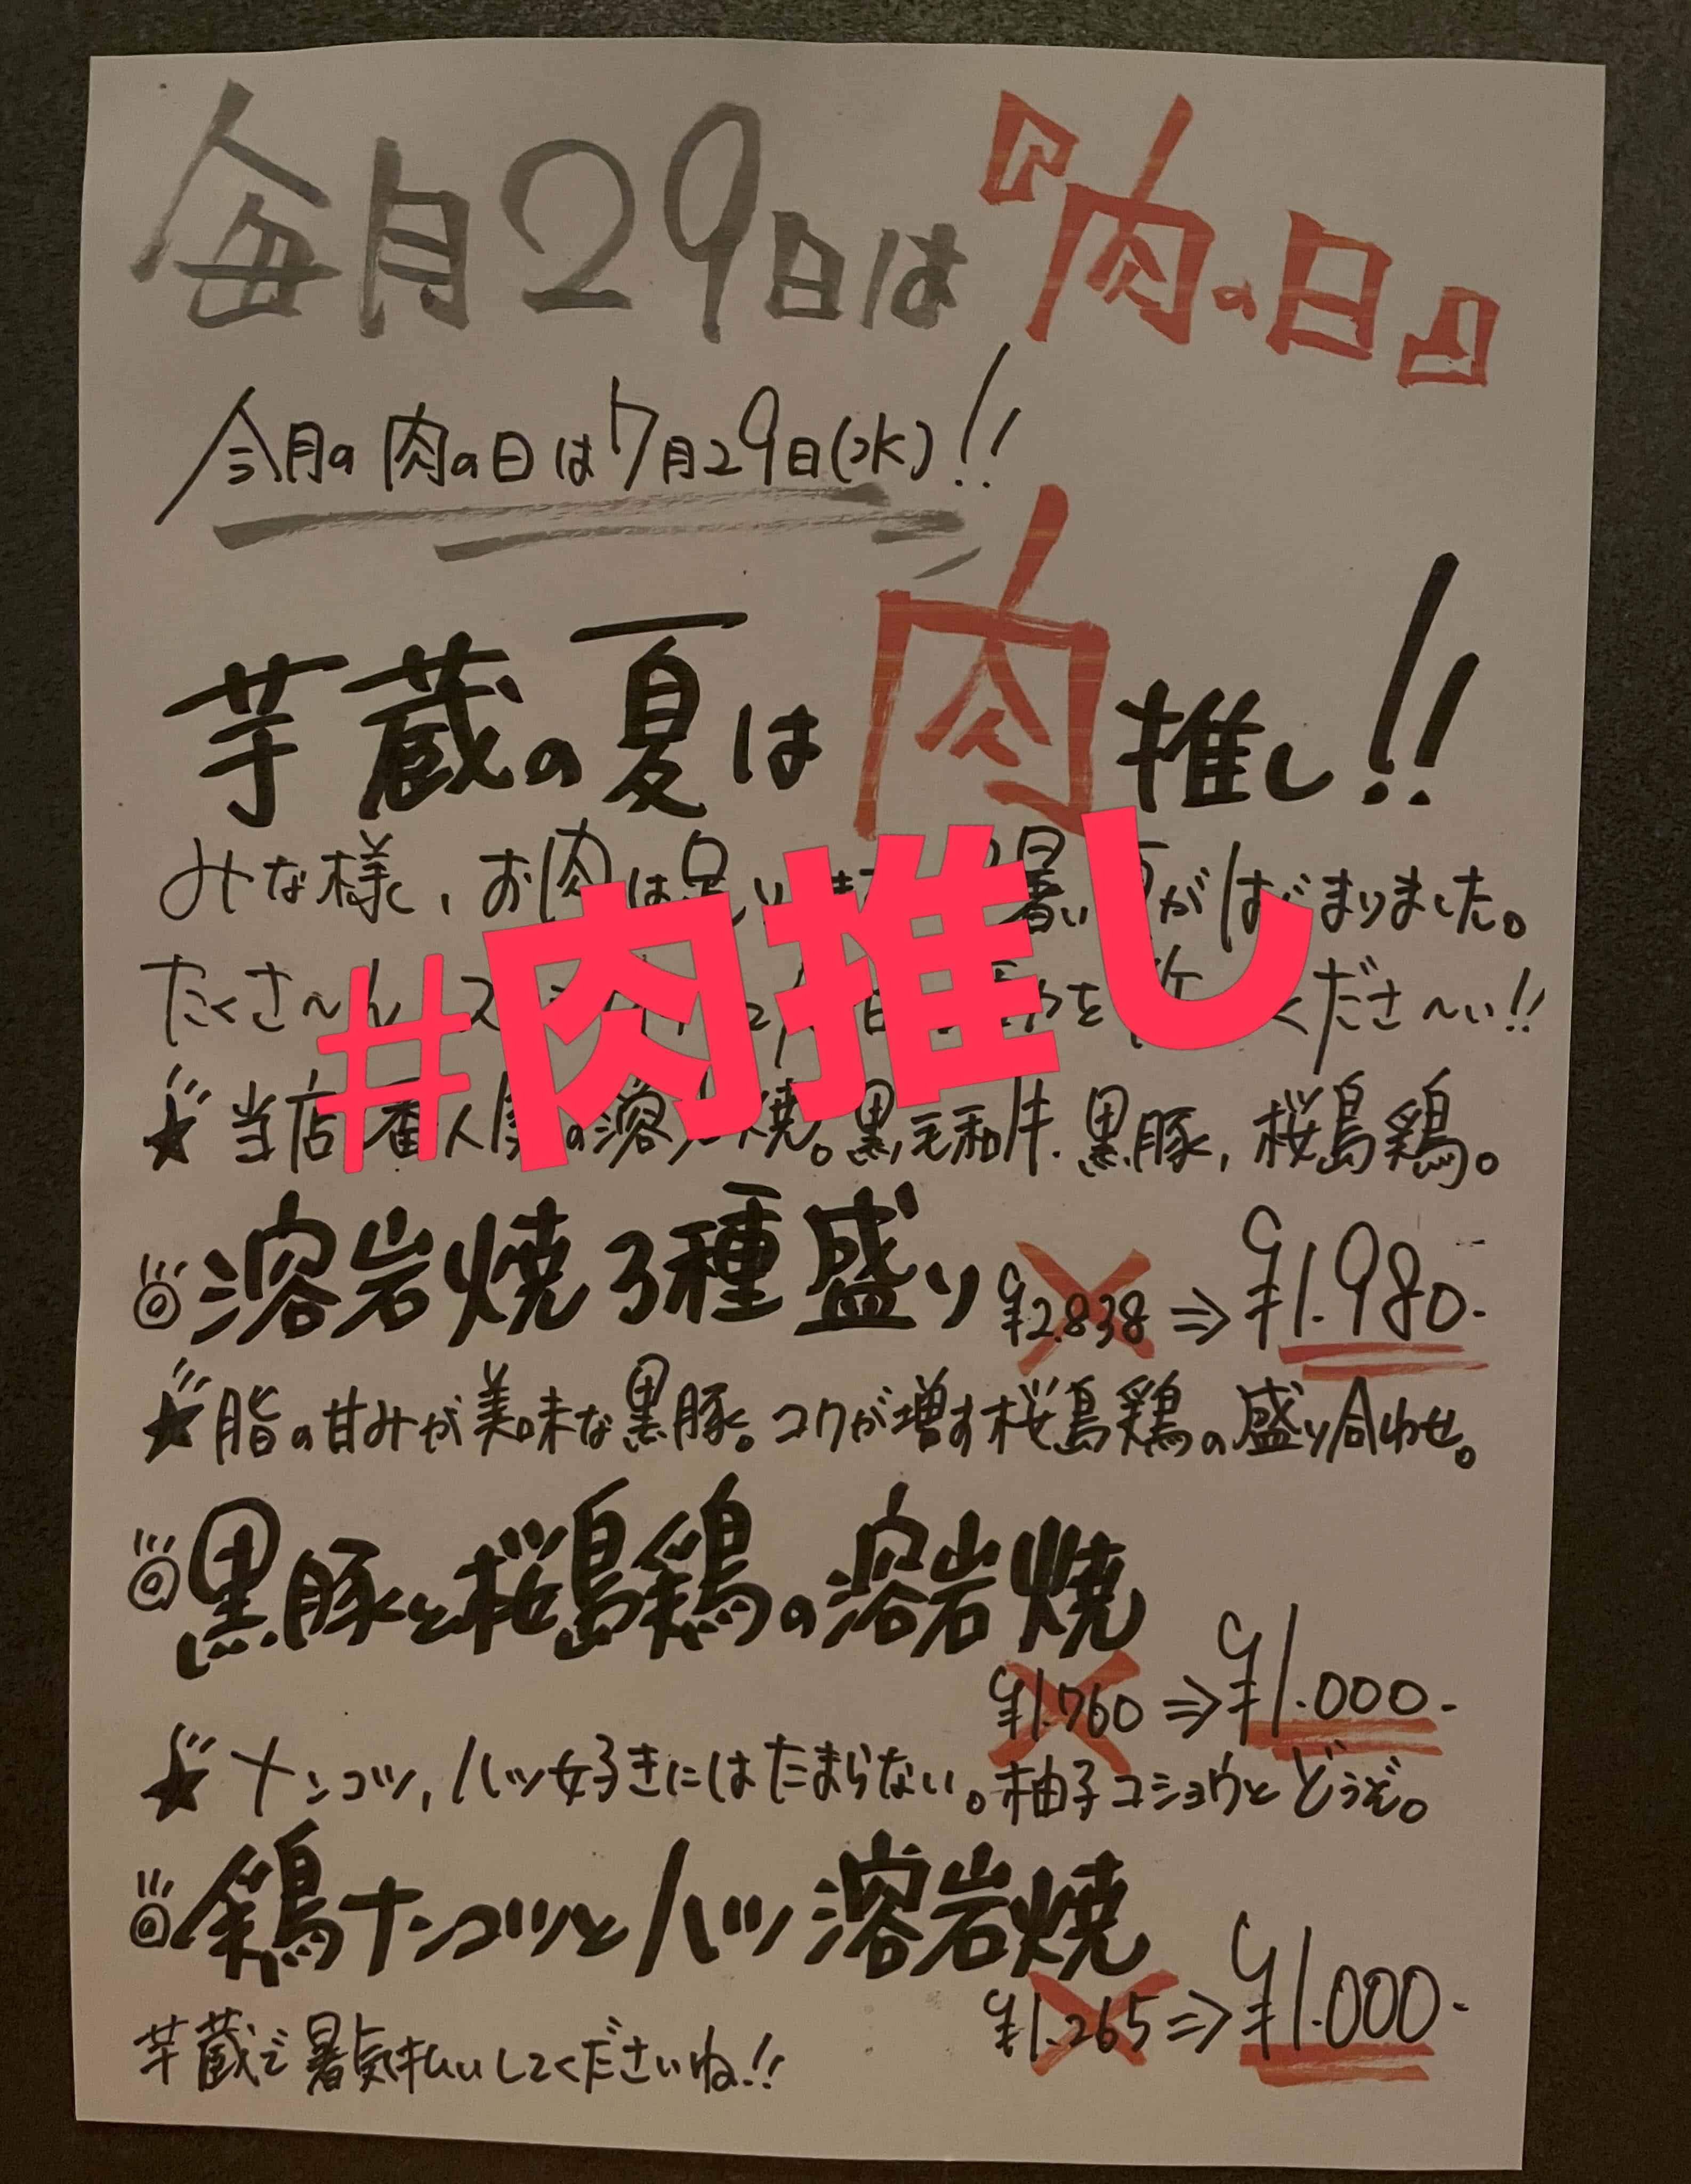 毎月29日は『肉の日』
今月の肉の日は7月29日(水)!!
芋蔵の夏は肉推し!!
みな様、お肉は 暑い がはじまりました。
たくさ〜ん くださ〜い!!
#肉推し
★当店 番人気の溶岩焼。黒毛和牛、黒豚、桜島鶏。
◎溶岩焼3種盛り ¥2.838⇒¥1.980-
★脂の甘みが美味な黒豚。コクが増す桜島鶏の盛り合わせ。
◎黒豚と桜島鶏の溶岩焼
¥1.760⇒¥1.000-
★ナンコツ、ハツ好きにはたまらない。柚子コショウとどうぞ。
◎鶏ナンコツとハツ溶岩焼
¥1.265⇒¥1.000-
芋蔵で暑気払いしてくださいね!!